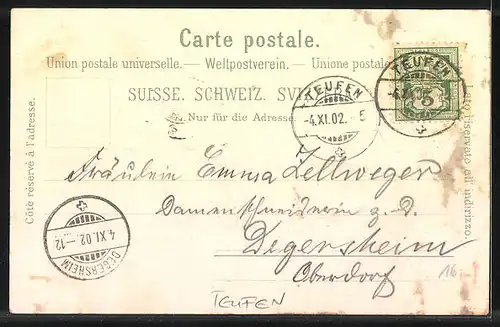 Carte postale.
Union postale universelle. — Weltpostverein. — Unione postale
SUISSE. SCHWEIZ. SV
Nur für die Adresse.
Côté réservé à l'adresse.
lato riservato all' indirizzo.
TEUFEN
-4.XI.02. 5
TEUFEN
-4.XI. 5
Fräulein Emma Zellweger
Damenschneiderin z. D.
Degersheim
Oberdorf
DEGERSHEIM
4.XI.02.-12
TEUFEN
16.-